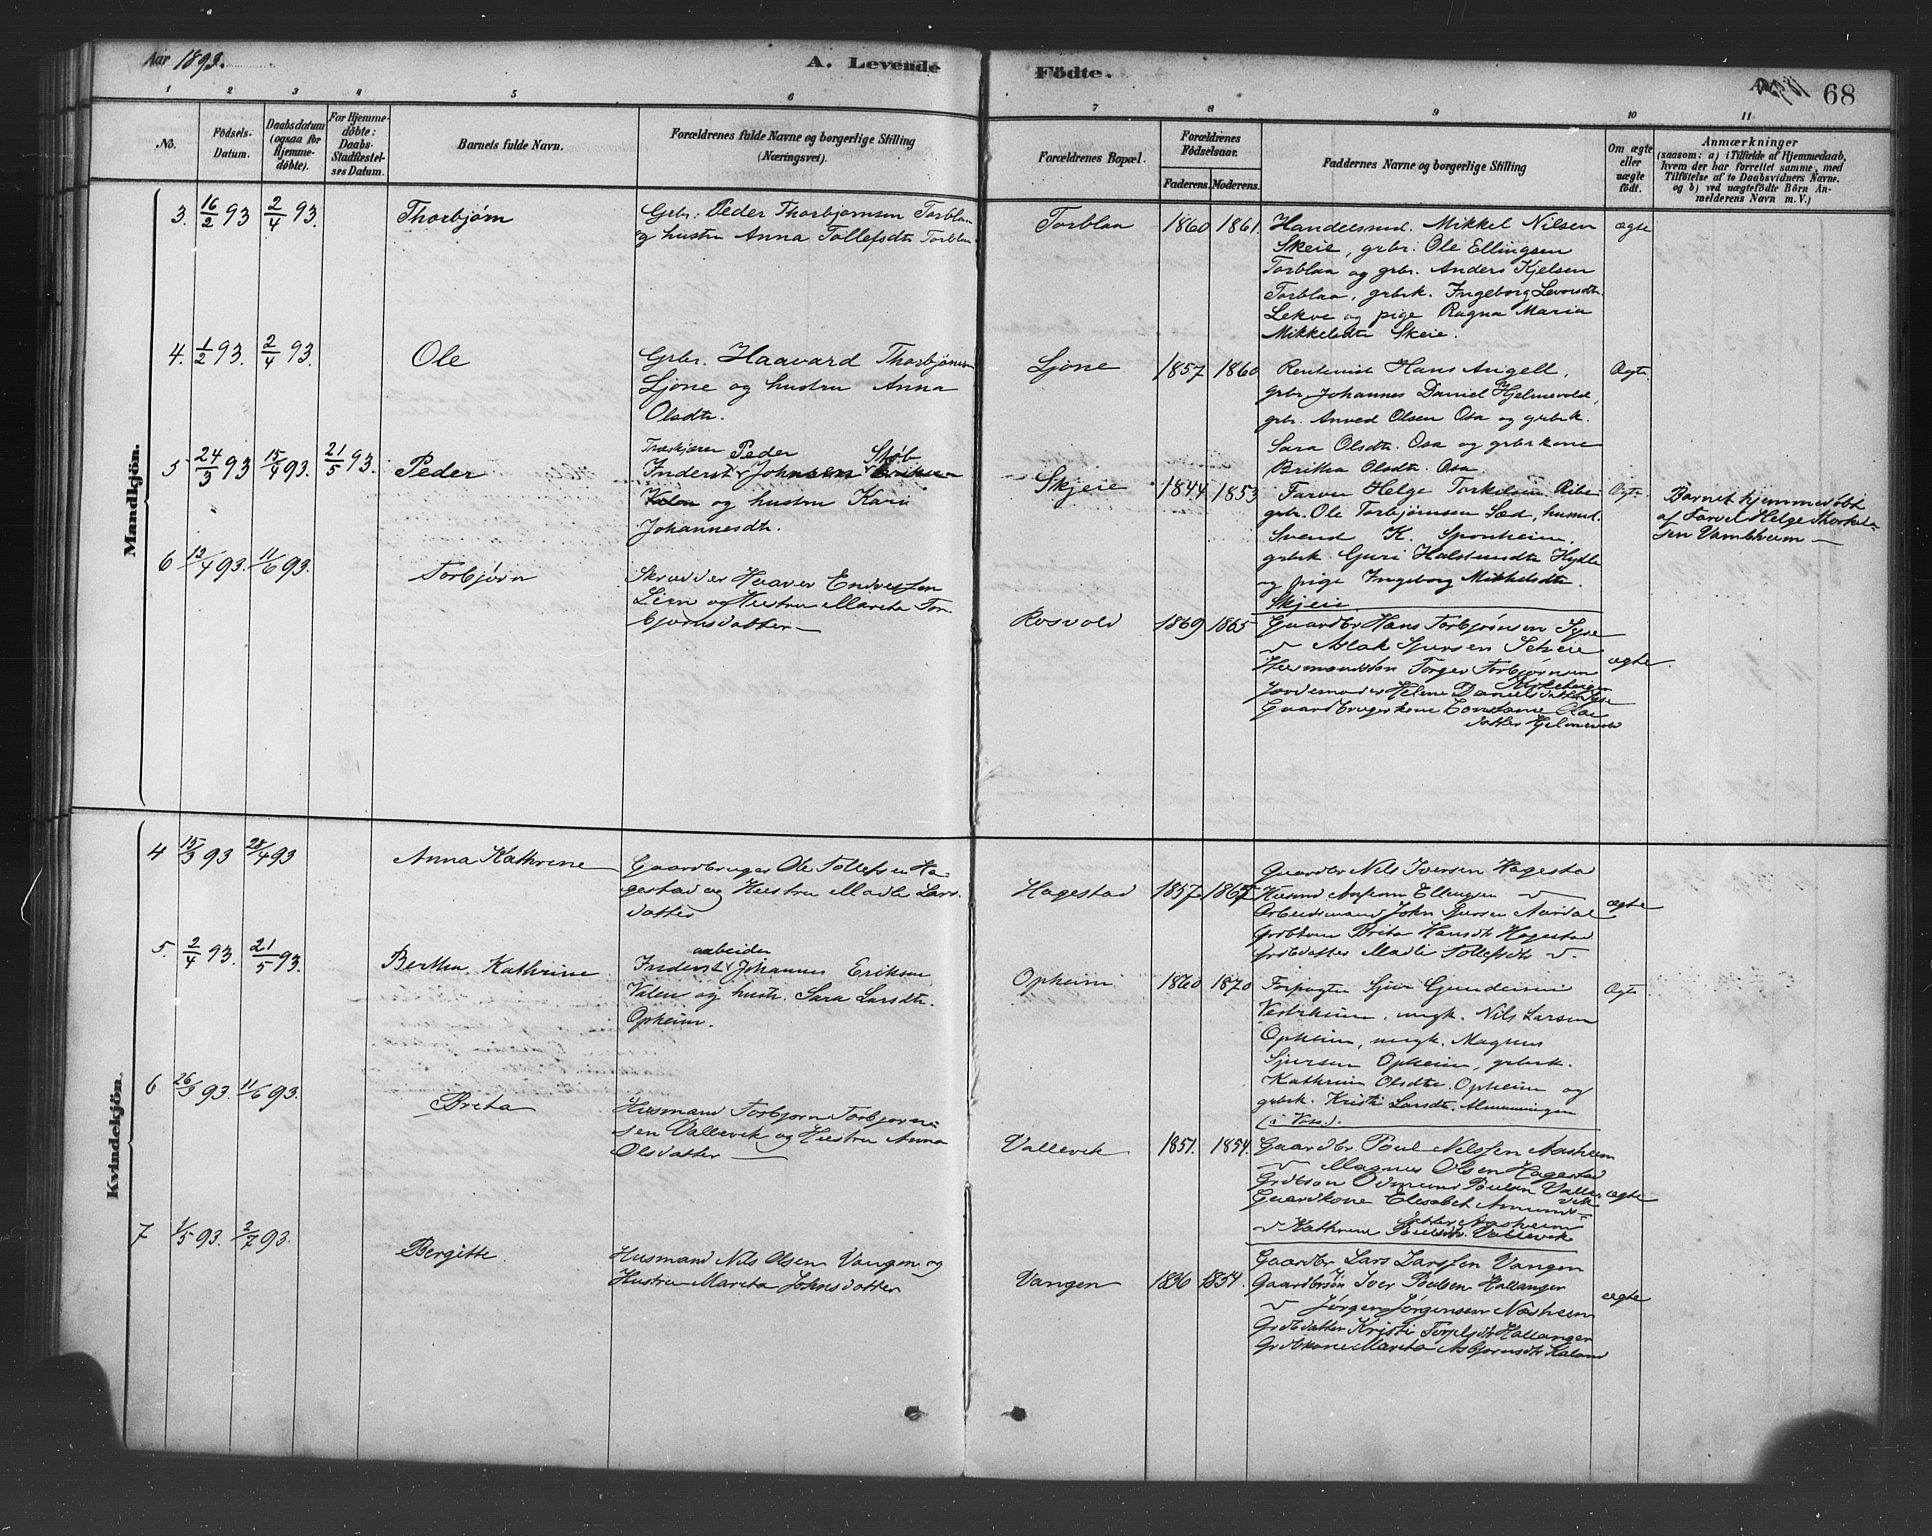 Aar 1893.
A. Levende
Födte.
68
1 2 3 4 5 6 7 8 9 10 11
No.
Födsels-
Datum.
Daabsdatum
(ogsaa for
Hjemme-
döbte).
For Hjemme-
döbte:
Daabs-
Stadfæstel-
ses Datum.
Barnets fulde Navn.
Forældrenes fulde Navne og borgerlige Stilling
(Næringsvei).
Forældrenes Bopæl.
Forældrenes
Födselsaar.
Faderens. Moderens.
Faddernes Navne og borgerlige Stilling
Om ægte
eller
uægte
födt.
Anmærkninger
(saasom: a) i Tilfælde af Hjemmedaab,
hvem der har forrettet samme, med
Tilföielse af to Daabsvidners Navne.
og b) ved uægtefödte Börn An-
melderens Navn m. V.)
Mandkjön.
3. 16/2 93 2/4 93. Thorbjørn
Grbr. Peder Thorbjørnsen Torblaa
og hustru Anna Tollefsdtr Torblaa
Torblaa 1860 1861.
Handelsmd. Mikkel Nilsen
Skeie, grbr. Ole Ellingsen
Torblaa og grbr. Anders Kjelsen
Torblaa, grbrk. Ingeborg Levorsdtr.
Lekve og pige Ragna Maria
Mikkelsdtr Skeie.
ægte
4. 1/2 93. 2/4 93 Ole
Grbr. Haavard Thorbjørnsen
Ljone og hustru Anna
Olsdtr.
Ljone 1857 1860
Rentenist Hans Angell,
grbr. Johannes Daniel Hjelmevold,
grbr. Anved Olsen Osa og grbrk.
Sara Olsdtr. Osa og grbrkone
Britha Olsdtr. Osa.
Ægte
5 24/3 93 15/4 93. 21/5 93. Peder
Træskjærer Peder Støb
Inderst Johnsen
Valen og hustru Kari
Johannesdtr.
Skjeie 1844 1853
Farver Helge Torkelsen Ribe
grbr. Ole Torbjørnsen Sæd, husmd.
Svend K. Sponheim,
grbrk Guri Halstensdtr Hylle
og pige Ingeborg Mikkelsdtr.
Skjeie
Ægte
Barnet hjemmedøbt
af Farver Helge Thorkel-
sen Vambheim —
6 12/4 93. 11/6 93. Torbjørn
Skrædder Haaver Endresen
Lien og Hustru Marita Tor-
bjørnsdatter —
Rosvold 1869 1865
Gaardbr Hans Torbjørnsen Syse
" Aslak Sjursen Skeie
Husmandssøn Torger Torbjørnsen
Kirkebergen
Jordemoder Helene Danielsdatter Syse
Gaardbrugerkone Constanse Olas
datter Hjelmevold
ægte
Kvindekjön.
4 15/3 93 28/4 93 Anna Kathrine
Gaardbruger Ole Tollefsen Ha-
gestad og Hustru Madli Lars-
datter
Hagestad 1857 1867
Gaardbr Nils Iversen Hagestad
Husmd Ellingsen "
Arbeidsmand John Sjursen Aardal
Grdbkone Brita Hansdtr Hagestad
Grdbdatter Madli Tollefsdtr "
ægte
5. 2/4 93. 21/5 93. Bertha Kathrine
arbeider
Inderst Johannes Erikson
Valen og hustr. Sara Larsdtr.
Opheim.
Opheim 1860 1870
Forpagter Sjur Gunderson
Vestrheim, ungk. Nils Larsen
Opheim, ungk. Magnus
Sjursen Opheim, grbrk.
Kathrine Olsdtr. Opheim og
grbrk. Kristi Larsdtr. Almenningen
(i Voss).
Ægte
6 26/3 93. 11/6 93. Brita
Husmand Torbjørn Torbjørn-
sen Vallevik og Hustru Anna
Olsdatter —
Vallevik 1851. 1854.
Gaardbr Poul Nilssen Aasheim
" Magnus Olsen Hagestad
Grdbsøn Odmund Poulsen Valle-
vik
Gaardkone Elisabet Amunds-
datter Aasheim
" Kathrine Poulsdtr. Vallevik
ægte
7 1/5 93. 2/7 93. Bergitte
Husmand Nils Olsen Vangen og
Hustru Marita Johnsdatter
Vangen 1836 1854.
Gaardbr Lars Larssen Vangen
Gaardbrsøn Iver Poulsen Hallanger
" Jørgen Jørgensen Næsheim
Grdbdatter Kristi Torfinsdtr Hallanger
Grdbkone Marita Asbjørnsdtr Kaland
ægte